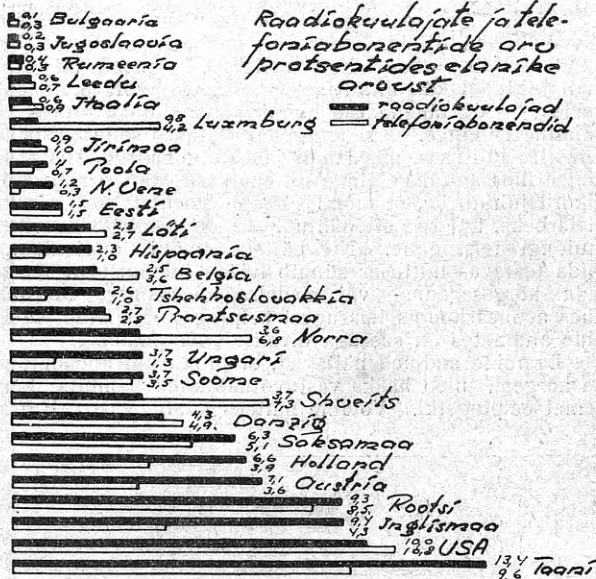 Raadiokuulajate ja tele-
foniabonentide arv
protsentides elanike
arvust
raadiokuulajad
telefoniabonendid
0,1
0,3 Bulgaaria
0,2
0,3 Jugoslaavia
0,4
0,3 Rumeenia
0,6
0,7 Leedu
0,6
0,9 Itaalia
0,8
4,2 Luxmburg
0,9
1,0 Iirimaa
1
0,7 Poola
1,2
0,3 N.Vene
1,5
1,5 Eesti
2,3
2,7 Läti
2,3
1,0 Hispaania
2,5
3,6 Belgia
2,6
1,0 Tshehhoslovakkia
2,7
2,8 Prantsusmaa
3,6
6,8 Norra
3,7
1,3 Ungari
3,7
3,5 Soome
3,7
7,3 Shveits
4,3
4,9. Danzig
6,3
5,1 Saksamaa
6,6
3,9 Holland
7,1
3,6 Austria
9,3
8,5. Rootsi
9,4
4,3 Inglismaa
10,0
10,8 USA
13,4
9,6 Taani